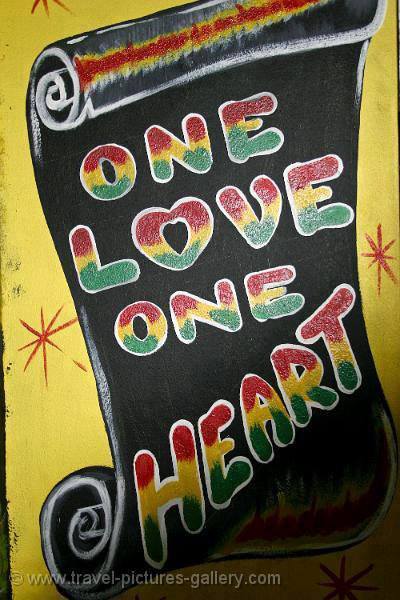 ONE
LOVE
ONE
HEART
© www.travel-pictures-gallery.com